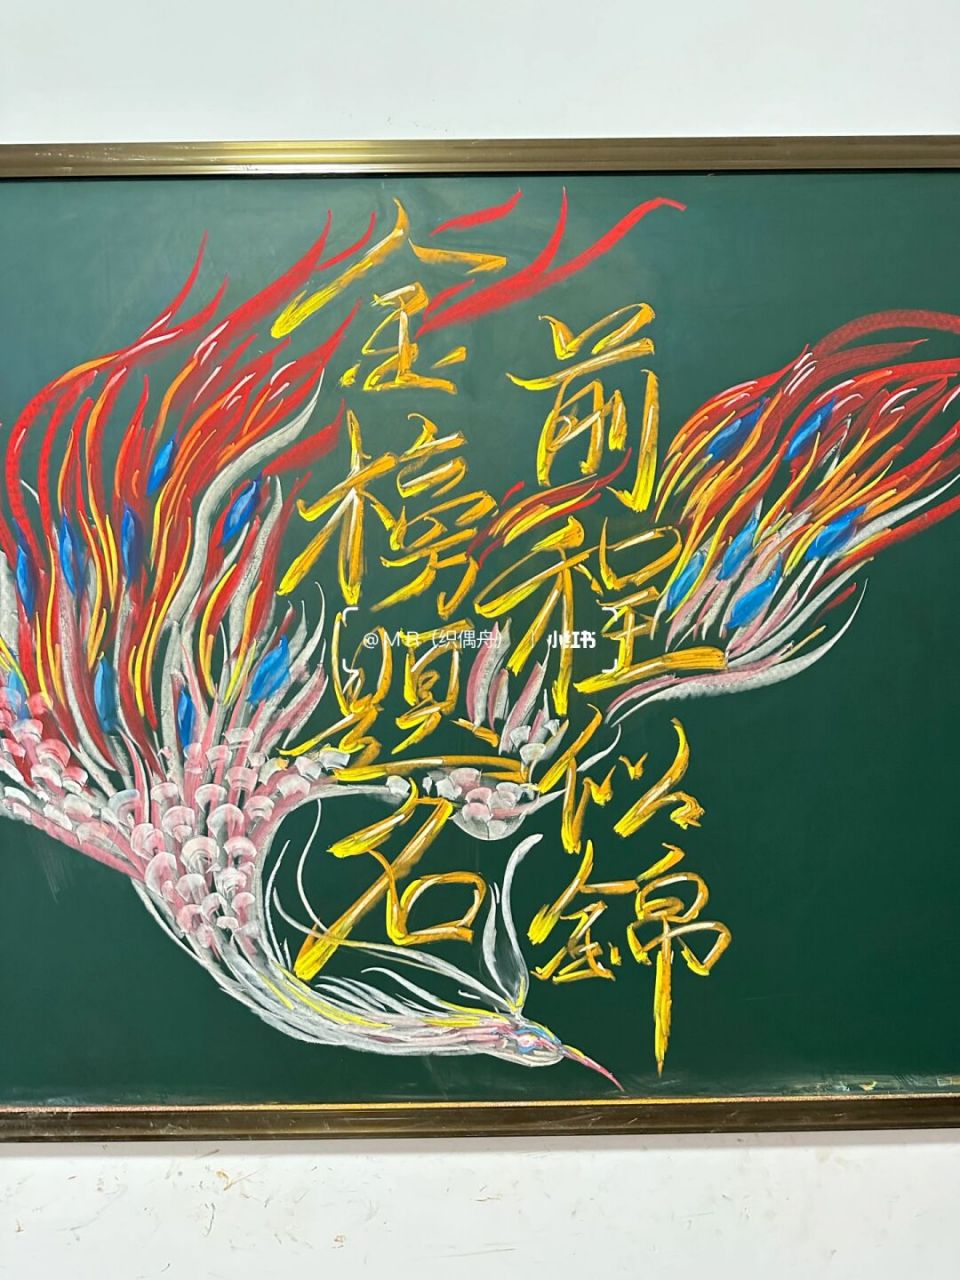 金榜題名
前程似錦
@M R（织偶舟） 小红书